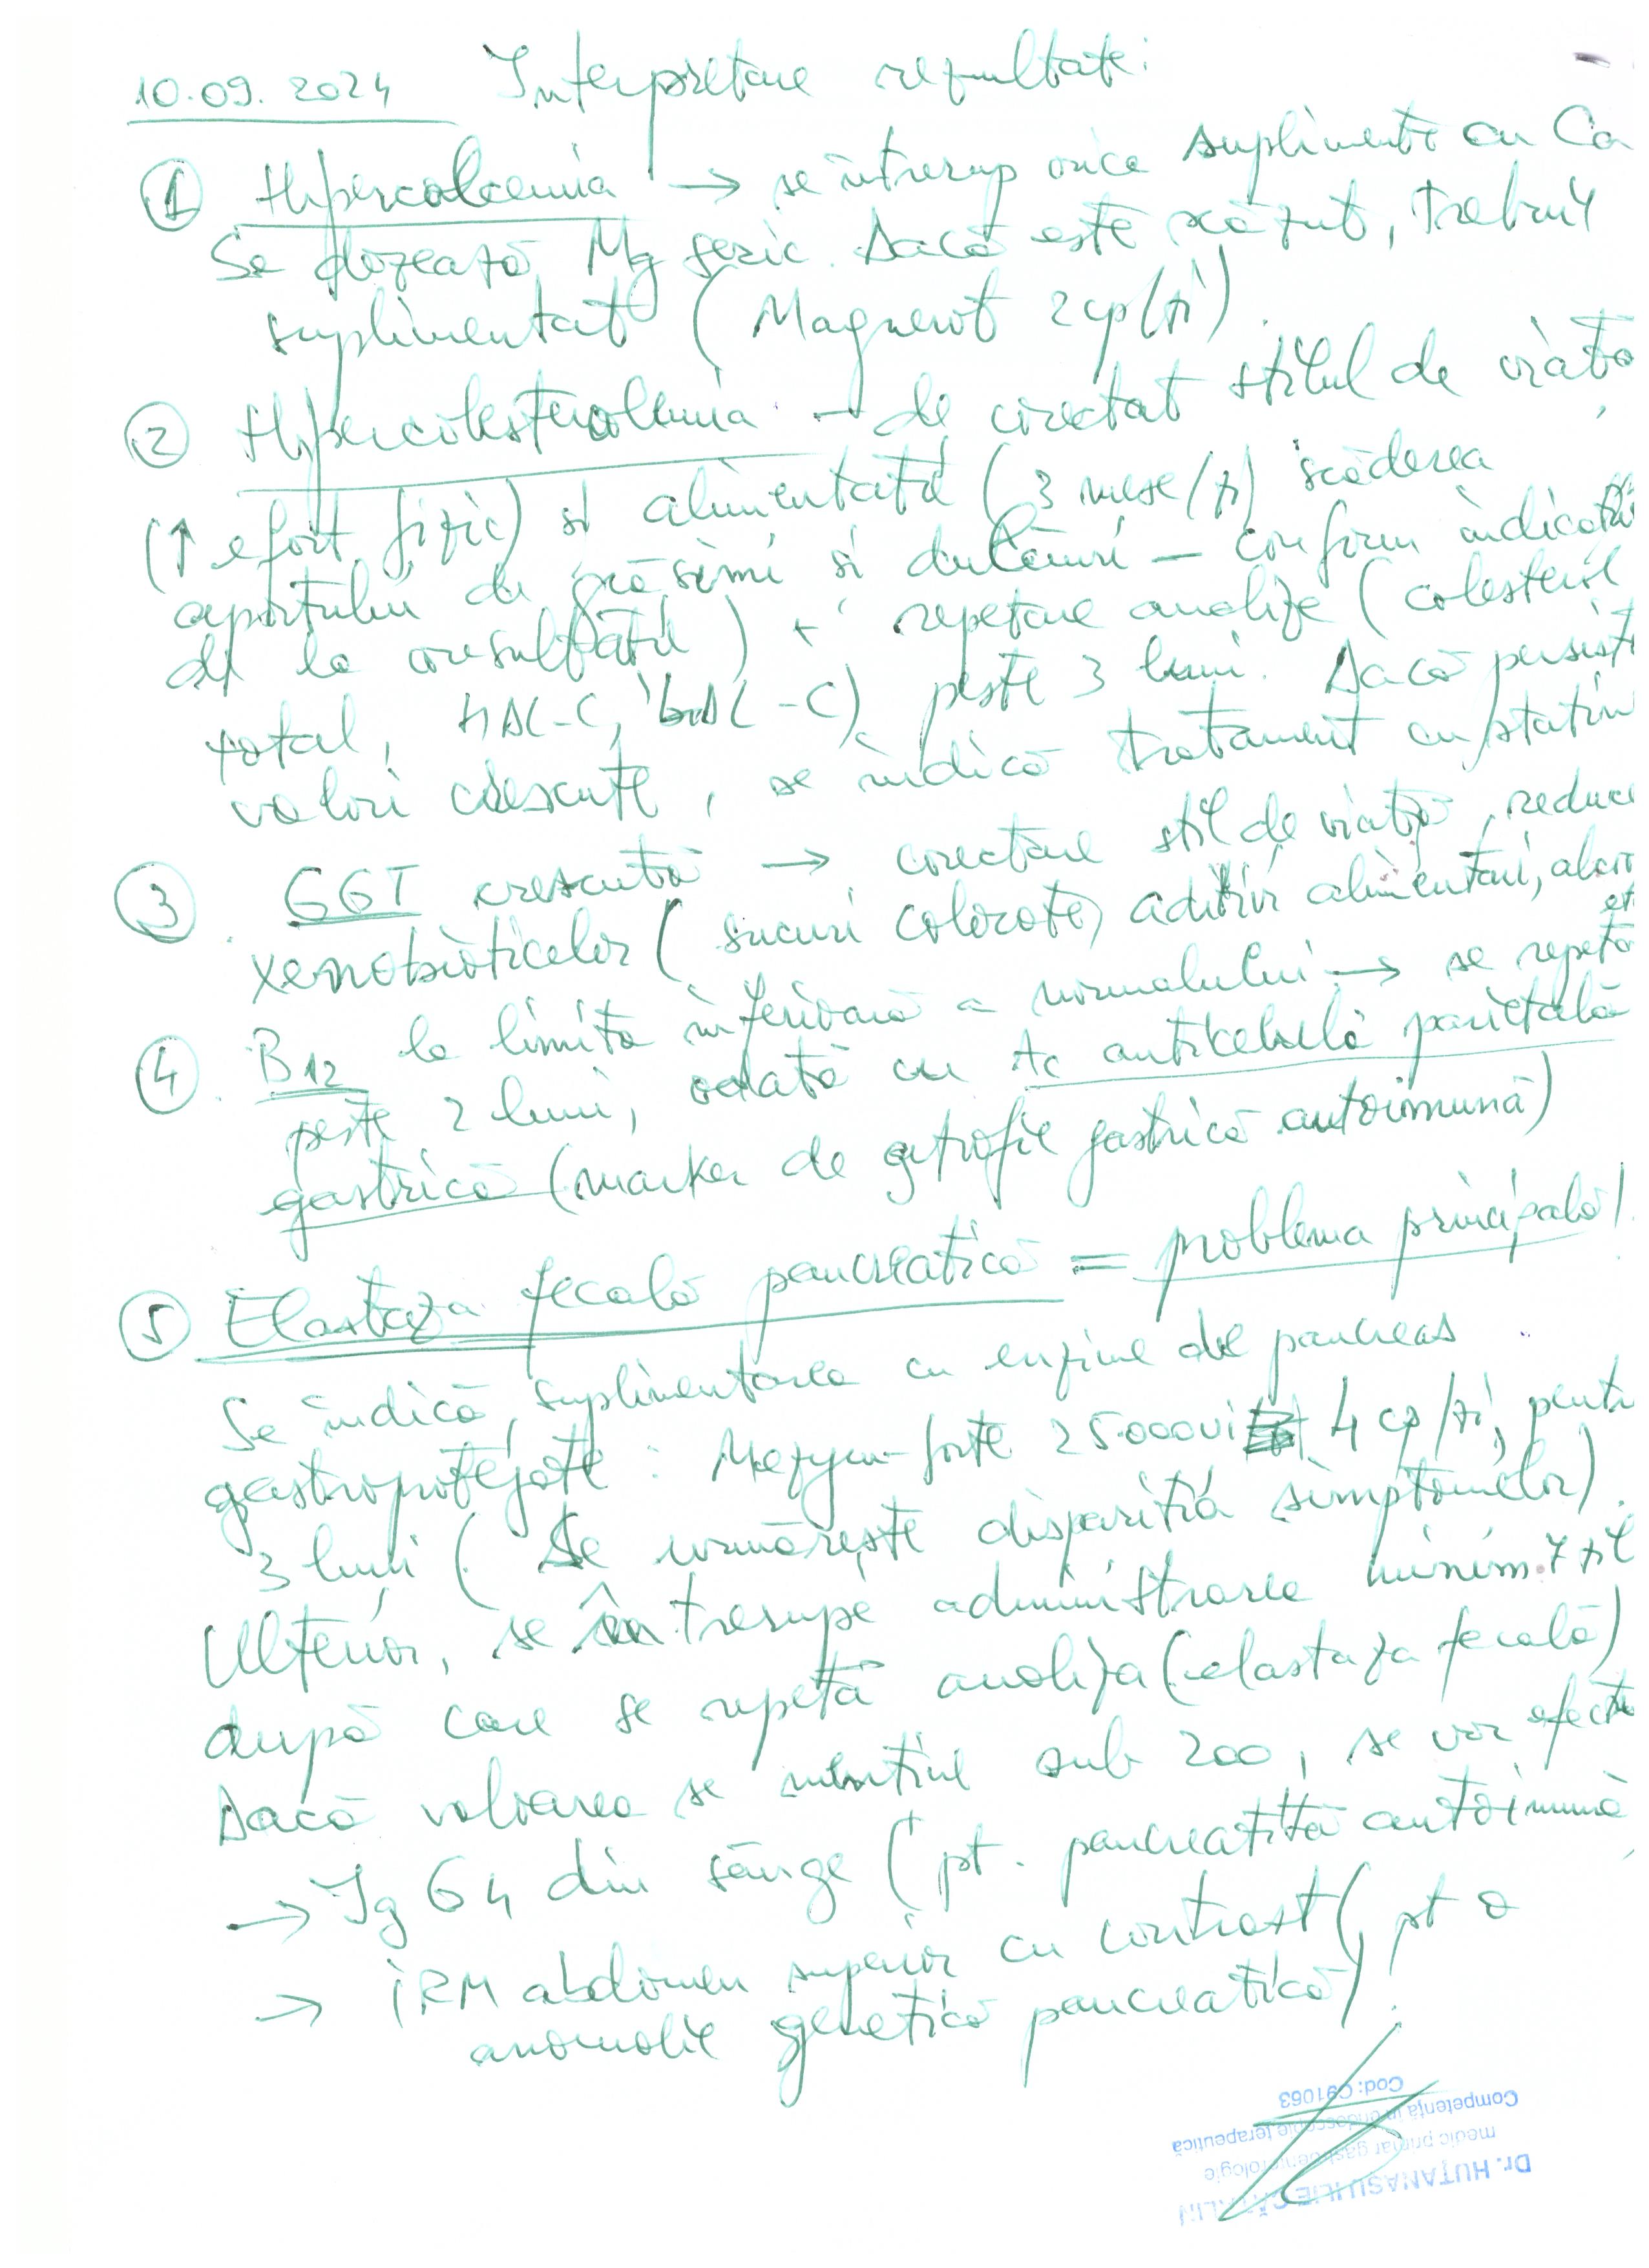 10.09.2024 Interpretare rezultate:
① Hipercalcemia → se întrerup orice supliment cu Ca
Se dozează Mg seric. Dacă este scăzut, trebuie
suplimentat (Magnerot 2cp/zi).
② Hipercolesterolemia → de corectat stilul de viață
(↑ efort fizic) și alimentația (3 mese/zi scăderea
aportului de grăsimi și dulciuri – conform indicații
de la consultație) + repetare analize (colesterol
total, HDL-C, LDL-C) peste 3 luni. Dacă persistă
valori crescute, se indică tratament cu statin
③ GGT crescută → corectare stil de viață, reduce
xenobioticelor (sucuri colorate, aditivi alimentari, alcool
etc
④ B12 la limita inferioară a normalului → se repetă
peste 2 luni, odată cu Ac anticelulă parietală
gastrică (marker de atrofie gastrică autoimună)
⑤ Elastaza fecală pancreatică = problema principală!
Se indică suplimentarea cu enzime de pancreas
gastroprotejate: Mezym forte 25.000ui 4 cp/zi, pentru
3 luni (Se urmărește dispariția simptomelor).
Ulterior, se întrerupe administrarea minim 7 zile
după care se repetă analiza (elastaza fecală)
Dacă valoarea se menține sub 200, se vor efectu
→ Ig G4 din sânge (pt. pancreatită autoimună,
→ IRM abdomen superior cu contrast (pt o
anomalie genetică pancreatică).
Dr. HUȚANAȘU ILIE CĂTĂLIN
medic primar gastroenterologie
Competență în endoscopie terapeutică
Cod: C91063